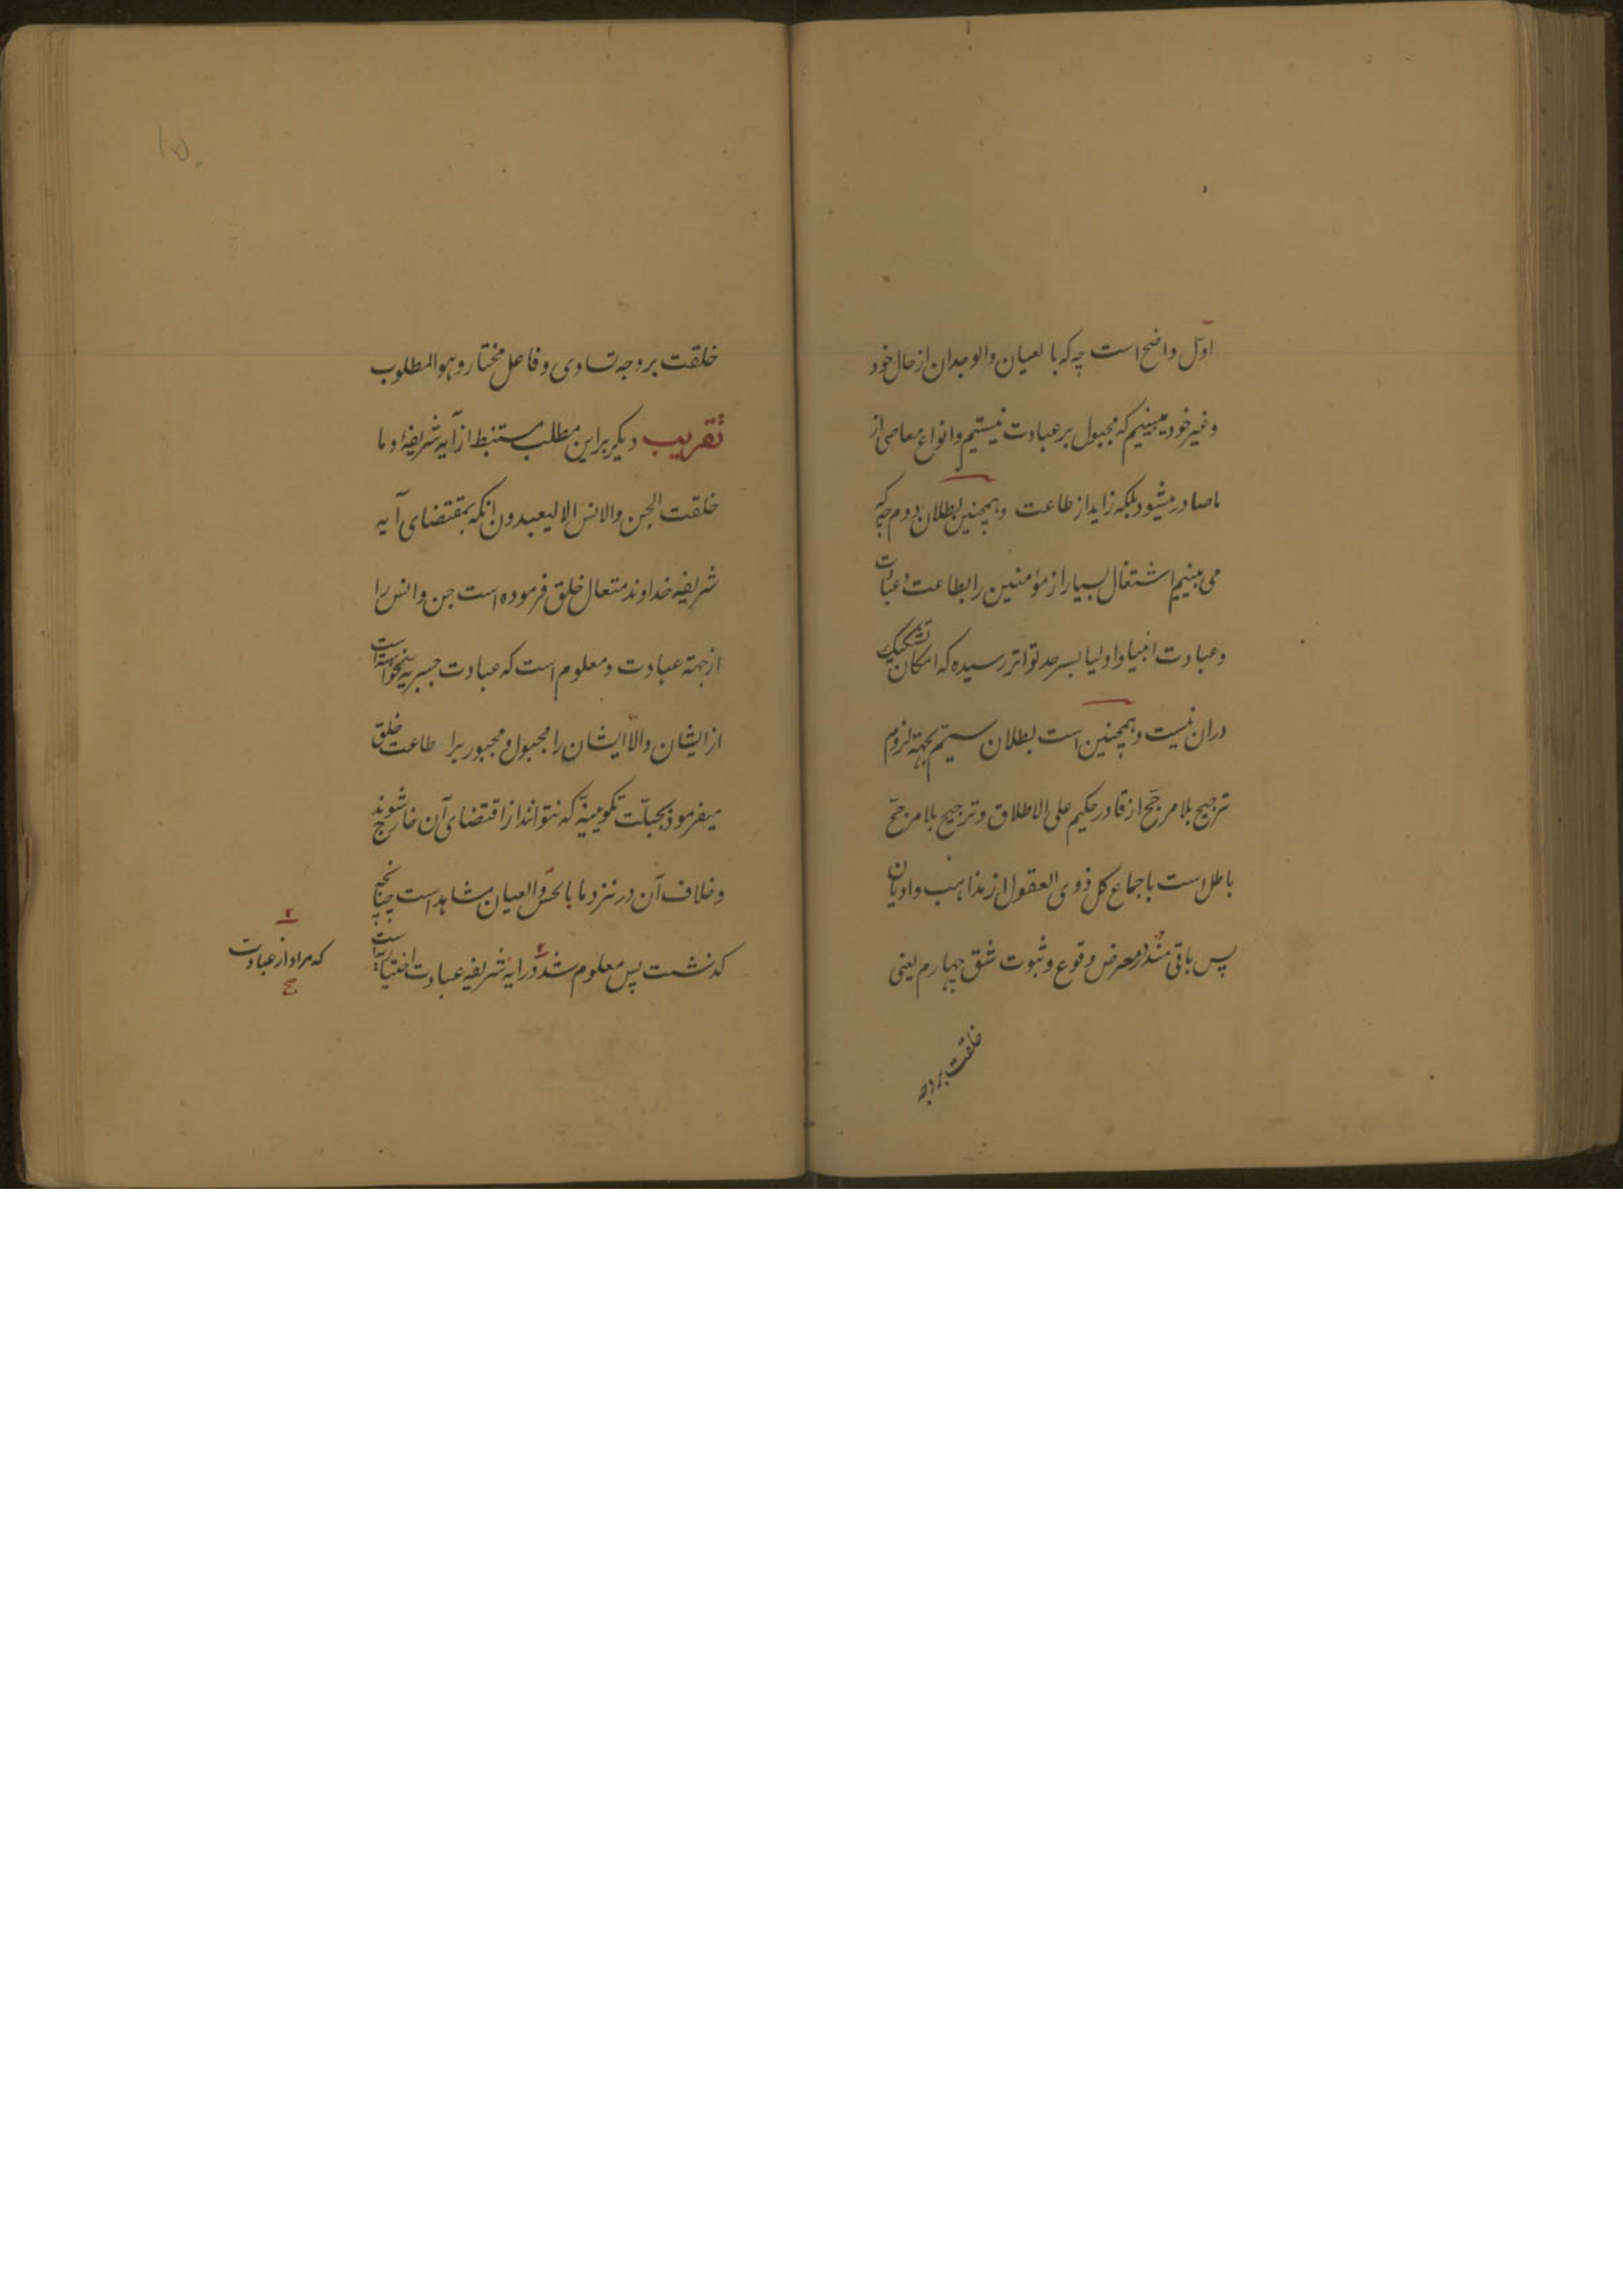 اوّل واضح است چه که بالعیان والوجدان از حال خود
و غیر خود میبینیم که مجبول بر عبادت نیستیم و انواع معاصی از
ما صادر میشود بلکه زاید از طاعت و همچنین بطلان دوم چه که
می بینیم اشتغال بسیار از مؤمنین را بطاعت و عبادت
و عبادت انبیا و اولیا بسر حد تواتر رسیده که امکان تشکیک
دران نیست و همچنین است بطلان سیّم بجهته لزوم
ترجیح بلا مرجّح از قادر حکیم علی الاطلاق و ترجیح بلا مرجّح
باطل است باجماع کل ذوی العقول از مذاهب و ادیان
پس باقی مند در معرض وقوع و ثبوت شق چهارم یعنی
خلقت بر وجه
۱۵۰
خلقت بر وجه تساوی و فاعل مختار و هو المطلوب
تقریب دیکر براین مطلب مستنبط از آیه شریفهٔ و ما
خلقت الجن والانس الا لیعبدون انکه بمقتضای آیه
شریفه خداوند متعال خلق فرموده است جن و انس را
از جهته عبادت و معلوم است که عبادت جبریه نخواسته است
از ایشان والّا ایشان را مجبول و مجبور برا طاعت خلق
میفرمود بجبلّت تکوینیّه که نتوانند از اقتضای آن خارج شوند
و خلاف آن در نزد ما بالحسّ والعیان مشاهد است چنانچه
کذشت پس معلوم شد ۲ درایه شریفه عبادت اختیاریه است
۲
که مراد از عبادت
صح